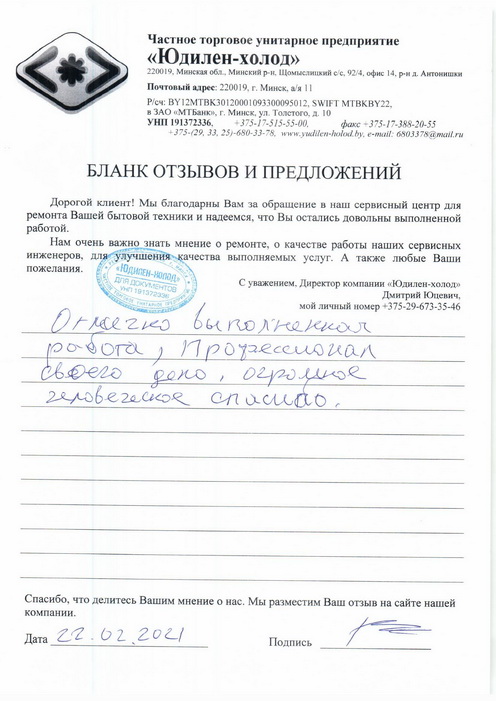 Частное торговое унитарное предприятие
«Юдилен-холод»
220019, Минская обл., Минский р-н, Щомыслицкий с/с, 92/4, офис 14, р-н д. Антонишки
Почтовый адрес: 220019, г. Минск, а/я 11
Р/сч: BY12MTBK30120001093300095012, SWIFT MTBKBY22,
в ЗАО «МТБанк», г. Минск, ул. Толстого, д. 10
УНП 191372336, +375-17-515-55-00, факс +375-17-388-20-55
+375-(29, 33, 25)-680-33-78, www.yudilen-holod.by, e-mail: 6803378@mail.ru
БЛАНК ОТЗЫВОВ И ПРЕДЛОЖЕНИЙ
Дорогой клиент! Мы благодарны Вам за обращение в наш сервисный центр для
ремонта Вашей бытовой техники и надеемся, что Вы остались довольны выполненной
работой.
Нам очень важно знать мнение о ремонте, о качестве работы наших сервисных
инженеров, для улучшения качества выполняемых услуг. А также любые Ваши
пожелания.
«Юдилен-холод»
ДЛЯ ДОКУМЕНТОВ
УНП 191372336
С уважением, Директор компании «Юдилен-холод»
Дмитрий Юцевич,
мой личный номер +375-29-673-35-46
Отлично выполненная
работа, Профессионал
своего дело, огромное
человеческое спасибо.
Спасибо, что делитесь Вашим мнение о нас. Мы разместим Ваш отзыв на сайте нашей
компании.
Дата 22.02.2021 Подпись